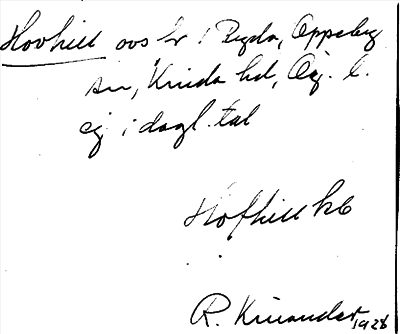 Hovhill oos hr i Bryda, Oppeby
sn, Kinda hd, Ög. l.
ej i dagl. tal
Hofhill kb
R. Kinander 1928